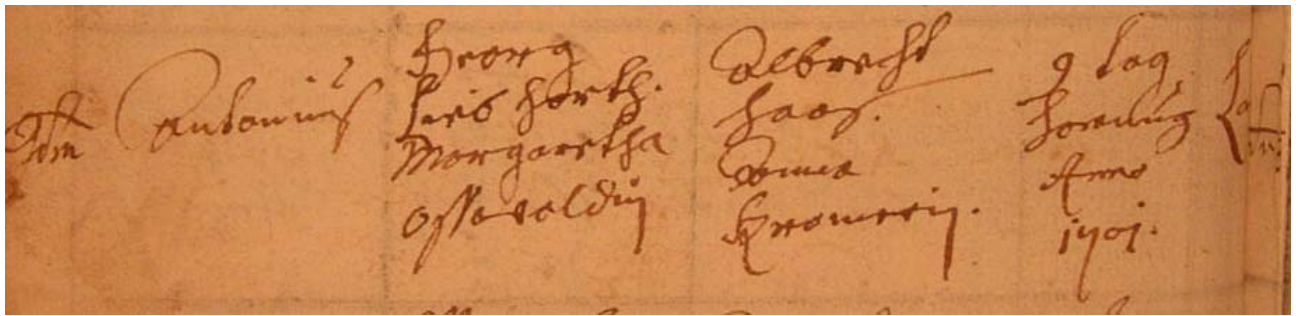 Antonius
Georg
Lieb horth.
Margaretha
Osswaldin
Albrecht
haas.
Anna
Kromerin.
9 tag
hornūg
Anno
1701.